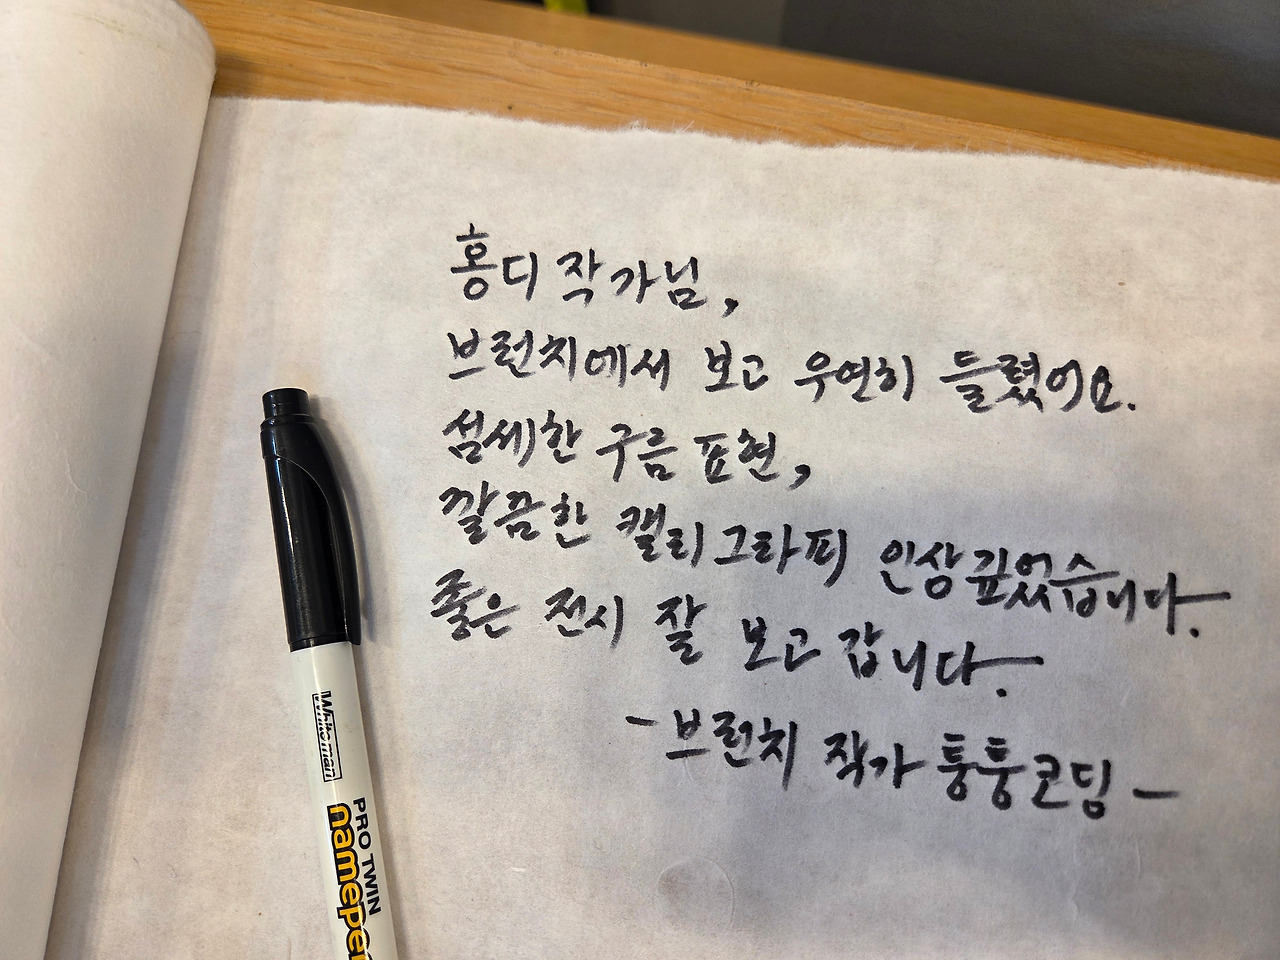 홍디 작가님,
브런치에서 보고 우연히 들렸어요.
섬세한 구름 표현,
깔끔한 캘리그라피 인상깊었습니다.
좋은 전시 잘 보고 갑니다.
- 브런치 작가 퉁퉁코딩 -
Whiteman
PRO TWIN
namepe